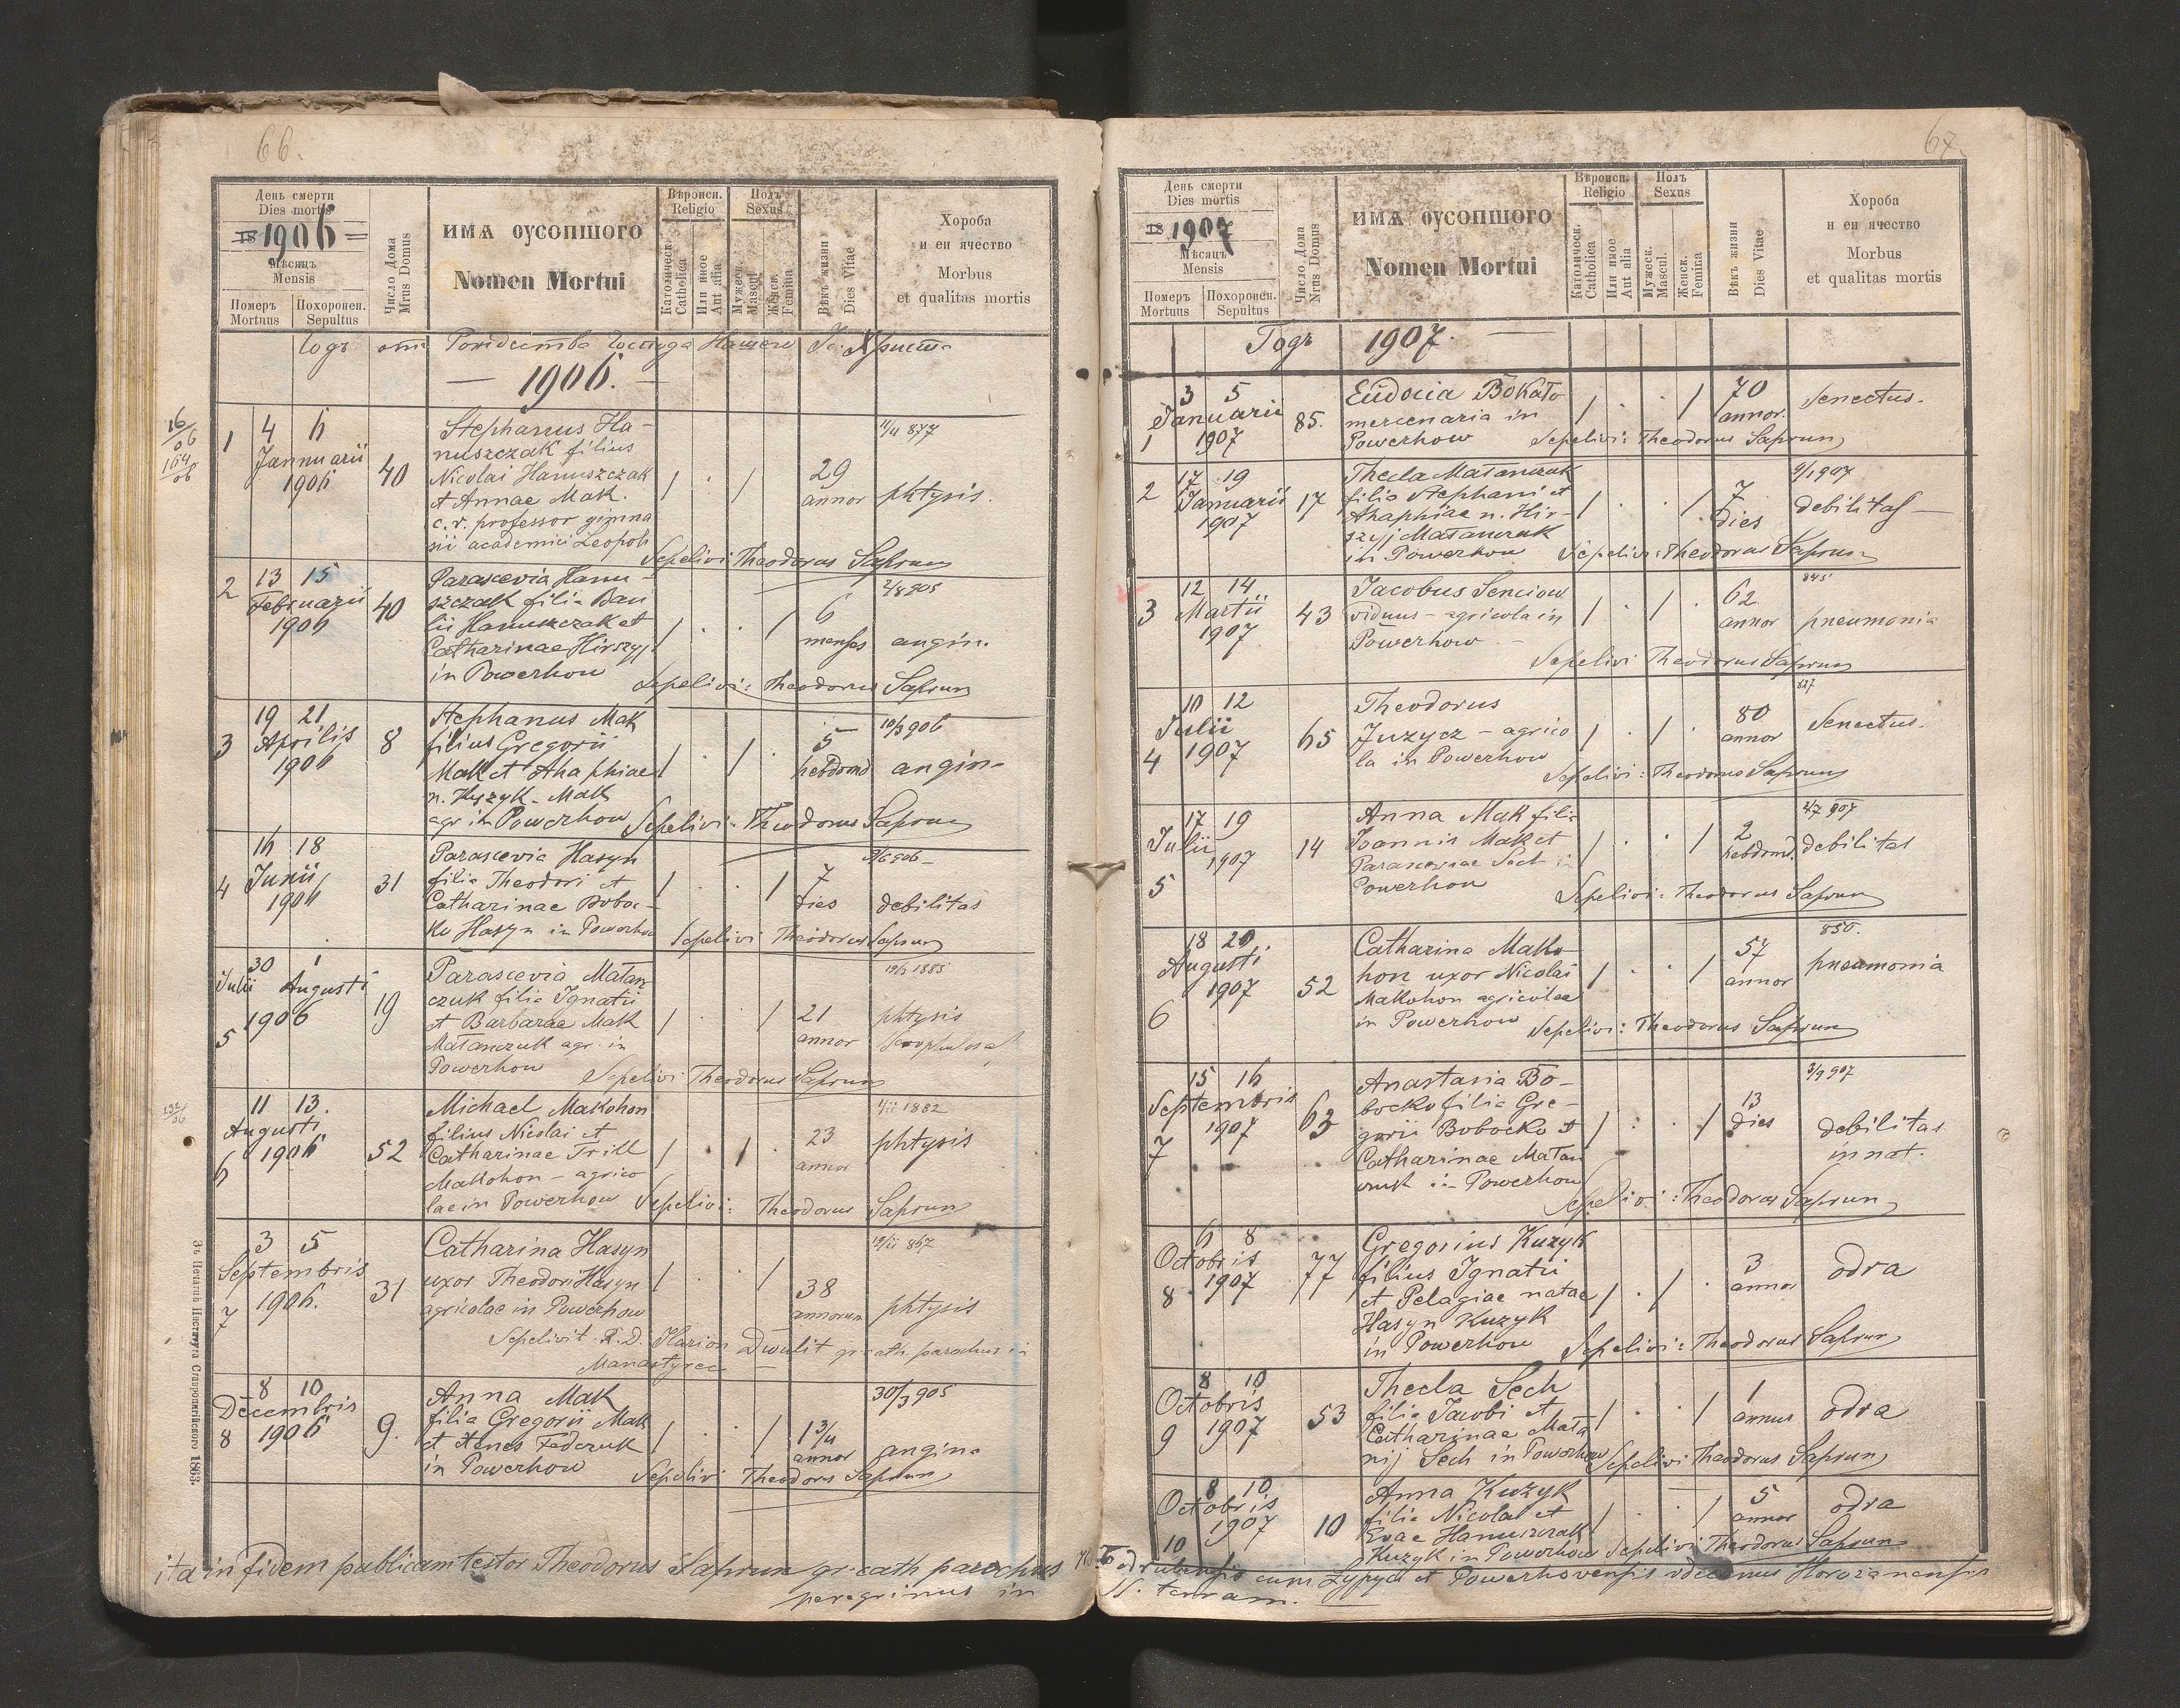 66.
День смерти
Dies mortis
18 1906
Мѣсяцъ
Mensis
Номеръ
Mortuus
Похоронен.
Sepultus
Число Дома
Mrus Domus
имѧ оусопшого
Nomen Mortui
Вѣроисп.
Religio
Католическ.
Catholica
Или иное
Aut alia
Полъ
Sexus
Мужеск.
Mascul
Женск.
Femina
Вѣкъ жизни
Dies Vitae
Хороба
и еи ячество
Morbus
et qualitas mortis
Годъ отъ Рождества Господа Нашего Іс. Христа
— 1906. —
16/06
164/06
1
4 6
Jannuarii
1906
40
Stephanus Ha-
nuszczak filius
Nicolai Hanuszczak
et Annae Mak.
c. r. professor gimna
sii academici Leopoli
29
annor
11/11 877
phtysis.
Sepelivi Theodorus Saprun
2
13 15
Februarii
1906
40
Parascevia Hanu-
szczak filia Bau
lii Hanuszczak et
Catharinae Hirszyj
in Powerhow
6
menses
2/8 905
angin.
Sepelivi: Theodorus Saprun
3
19 21
Aprilis
1906
8
Stephanus Mak
filius Gregorii
Mak et Ahaphiae
n. Kuzyk-Mak
agr in Powerhow
5
hebdomd
10/3 906
angina
Sepelivi: Theodorus Saprun
4
16 18
Junii
1906
31
Parascevia Hasyn
filia Theodori et
Catharinae Boboc-
ko Hasyn in Powerhow
7
dies
9/6 906
debilitas
Sepelivi Theodorus Saprun
5
30 1
Julii Augusti
1906
19
Parascevia Matan
czuk filia Ignatii
et Barbarae Mak
Matanczuk agr. in
Powerhow
21
annor
1885
phtysis
Sepelivi Theodorus Saprun
232/06
6
11 13.
Augusti
1906
52
Michael Makohon
filius Nicolai et
Catharinae Trill
Makohon - agrico
lae in Powerhow
23
annor
1882
phtysis
Sepelivi: Theodorus Saprun
7
3 5
Septembris
1906.
31
Catharina Hasyn
uxor Theodori Hasyn
agricolae in Powerhow
38
annorum
867
phtysis
Sepelivit R. D. Ilarion Dwulit gr cath. parochus in
8
8 10
Decembris
1906
9.
Anna Mak
filia Gregorii Mak
et Xenes Fedczuk
in Powerhow
1 3/4
annor
30/3 905
angina
Sepelivi Theodorus Saprun
Зъ Печатнѣ Института Ставропигійского 1863.
ita in fidem publicam testor Theodorus Saprun gr. cath parochus
peregrinus in
67.
День смерти
Dies mortis
18 1907
Мѣсяцъ
Mensis
Номеръ
Mortuus
Похоронен.
Sepultus
Число Дома
Nrus Domus
имѧ оусопшого
Nomen Mortui
Вѣроисп.
Religio
Католическ.
Catholica
Или иное
Aut alia
Полъ
Sexus
Мужеск.
Mascul.
Женск.
Femina
Вѣкъ жизни
Dies Vitae
Хороба
и еи ячество
Morbus
et qualitas mortis
Годъ 1907. —
3 5
Januarii
1 1907
85.
Eudocia Bokalo
mercenaria in
Powerhow
70
annor.
senectus.
Sepelivi: Theodorus Saprun
2
17 19
Januarii
1907
17
Thecla Matanczuk
filia Stephani et
Ahaphiae n. Hir-
szyj Matanczuk
in Powerhow
7
dies
9/1 907
debilitas —
Sepelivi: Theodorus Saprun
3
12 14
Martii
1907
43
Jacobus Senciow
viduus - agricola in
Powerhow -
62
annor
845
pneumonia
Sepelivi Theodorus Saprun
10 12
Julii
4 1907
65
Theodorus
Juzycz - agrico
la in Powerhow
80
annor
827
senectus.
Sepelivi: Theodorus Saprun
17 19
Julii
1907
5
14
Anna Mak filia
Joannis Mak et
Parasceviae Sech in
Powerhow
2
hebdomd.
4/7 907
debilitas
Sepelivi: Theodorus Saprun
18 20.
Augusti
1907
6
52
Catharina Mako-
hon uxor Nicolai
Makohon agricolae
in Powerhow
57
annor
850.
pneumonia
Sepelivi: Theodorus Saprun
15 16
Septembris
1907
7
63
Anastasia Bo-
bocko filia Gre-
gorii Bobocko et
Catharinae Matan
czuk in Powerhow
13
dies
3/9 907
debilitas
in nat.
Sepelivi: Theodorus Saprun
6 8
Octobris
8 1907
77
Gregorius Kuzyk
filius Ignatii
et Pelagiae natae
Hasyn Kuzyk
in Powerhow
3
annor
odra
Sepelivi: Theodorus Saprun
8 10
Octobris
9 1907
53
Thecla Sech
filia Jacobi et
Catharinae Mata
nij Sech in Powerhow
1
annus
odra
Sepelivi Theodorus Saprun
8 10
Octobris
1907
10
10
Anna Kuzyk
filia Nicolai et
Evae Hanuszczak
Kuzyk in Powerhow
5
annor
odra
Sepelivi Theodorus Saprun
cum et Powerhovensis decanus Horozanensis
terram.